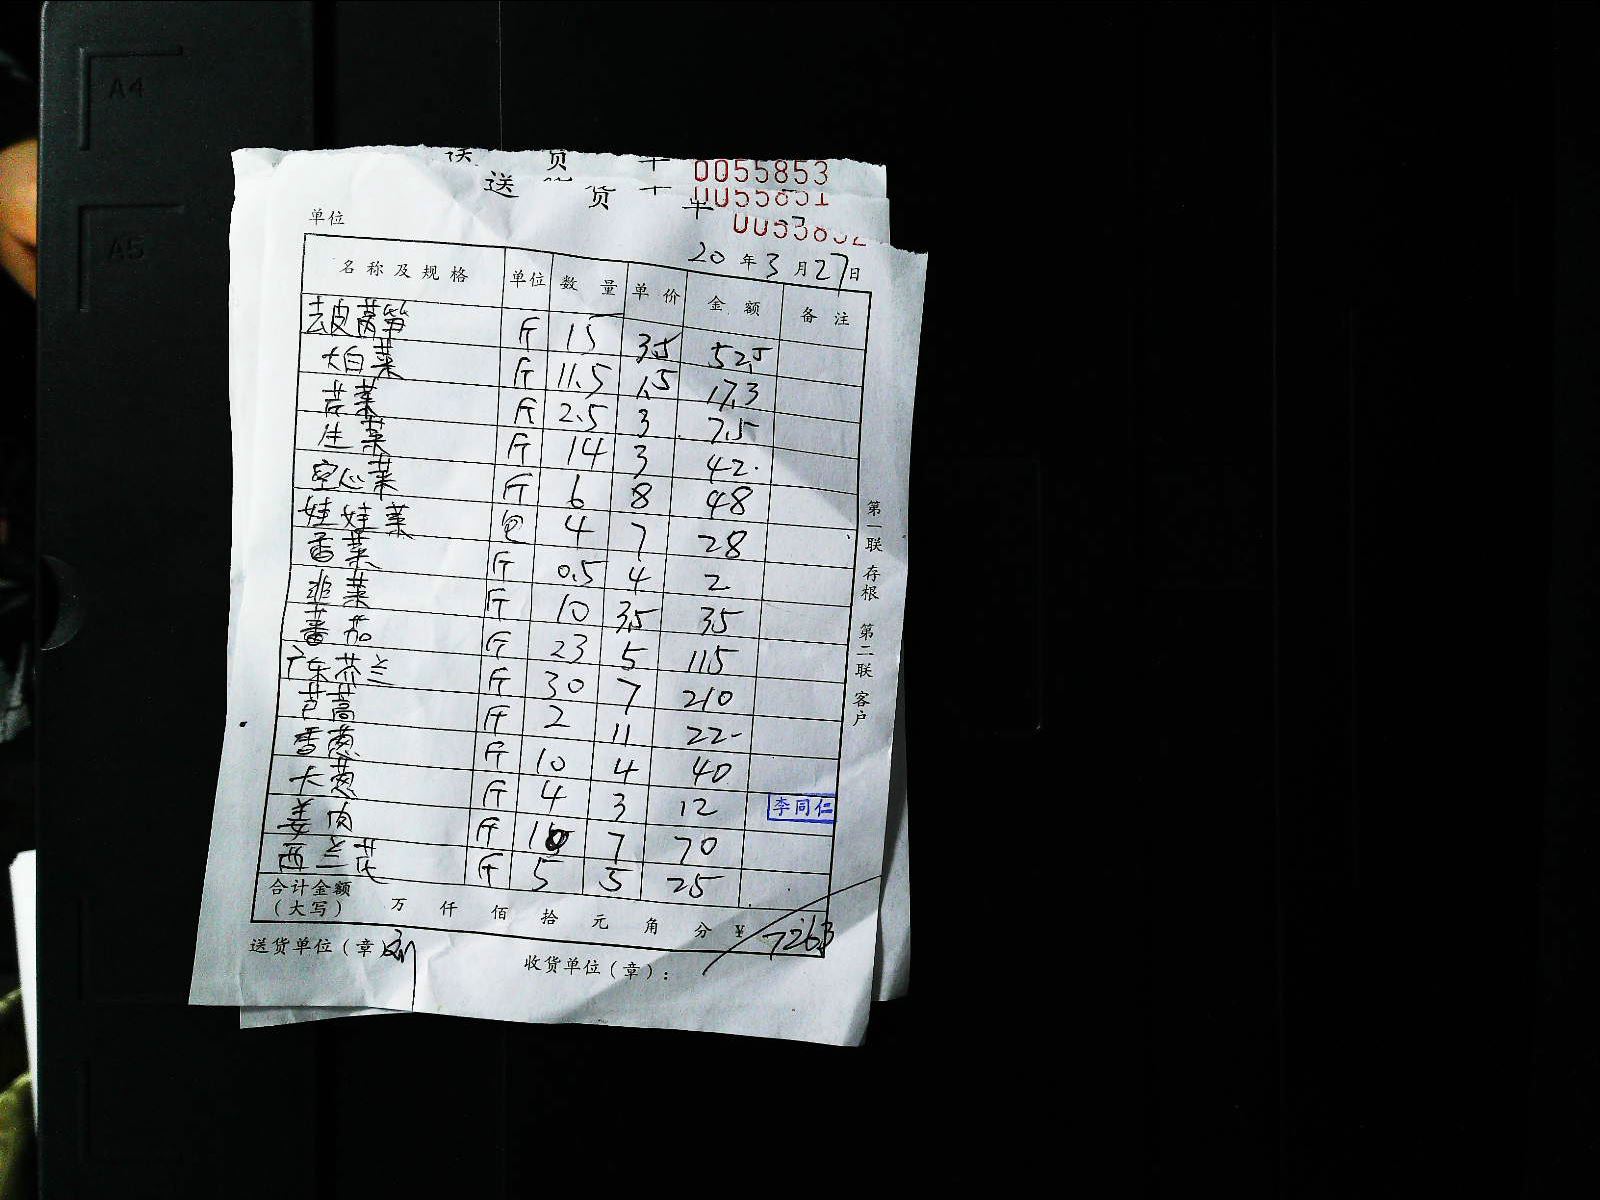 A4
A5
送 货 单 0055853
送 货 单 0055851
单位
20 年 3 月 27 日
名称及规格 单位 数量 单价 金额 备注
去皮莴笋 斤 15 3.5 52.5
大白菜 斤 11.5 1.5 17.3
苦菜 斤 2.5 3 7.5
生菜 斤 14 3 42.
空心菜 斤 6 8 48
娃娃菜 包 4 7 28
香菜 斤 0.5 4 2
韭菜 斤 10 3.5 35
蕃茄 斤 23 5 115
广东芥兰 斤 30 7 210
芦蒿 斤 2 11 22
香葱 斤 10 4 40
大葱 斤 4 3 12
李同仁
姜肉 斤 10 7 70
西兰花 斤 5 5 25
合计金额
(大写) 万 仟 佰 拾 元 角 分 ¥ 726.3
送货单位(章 刘
收货单位(章):
第一联 存根 第二联 客户